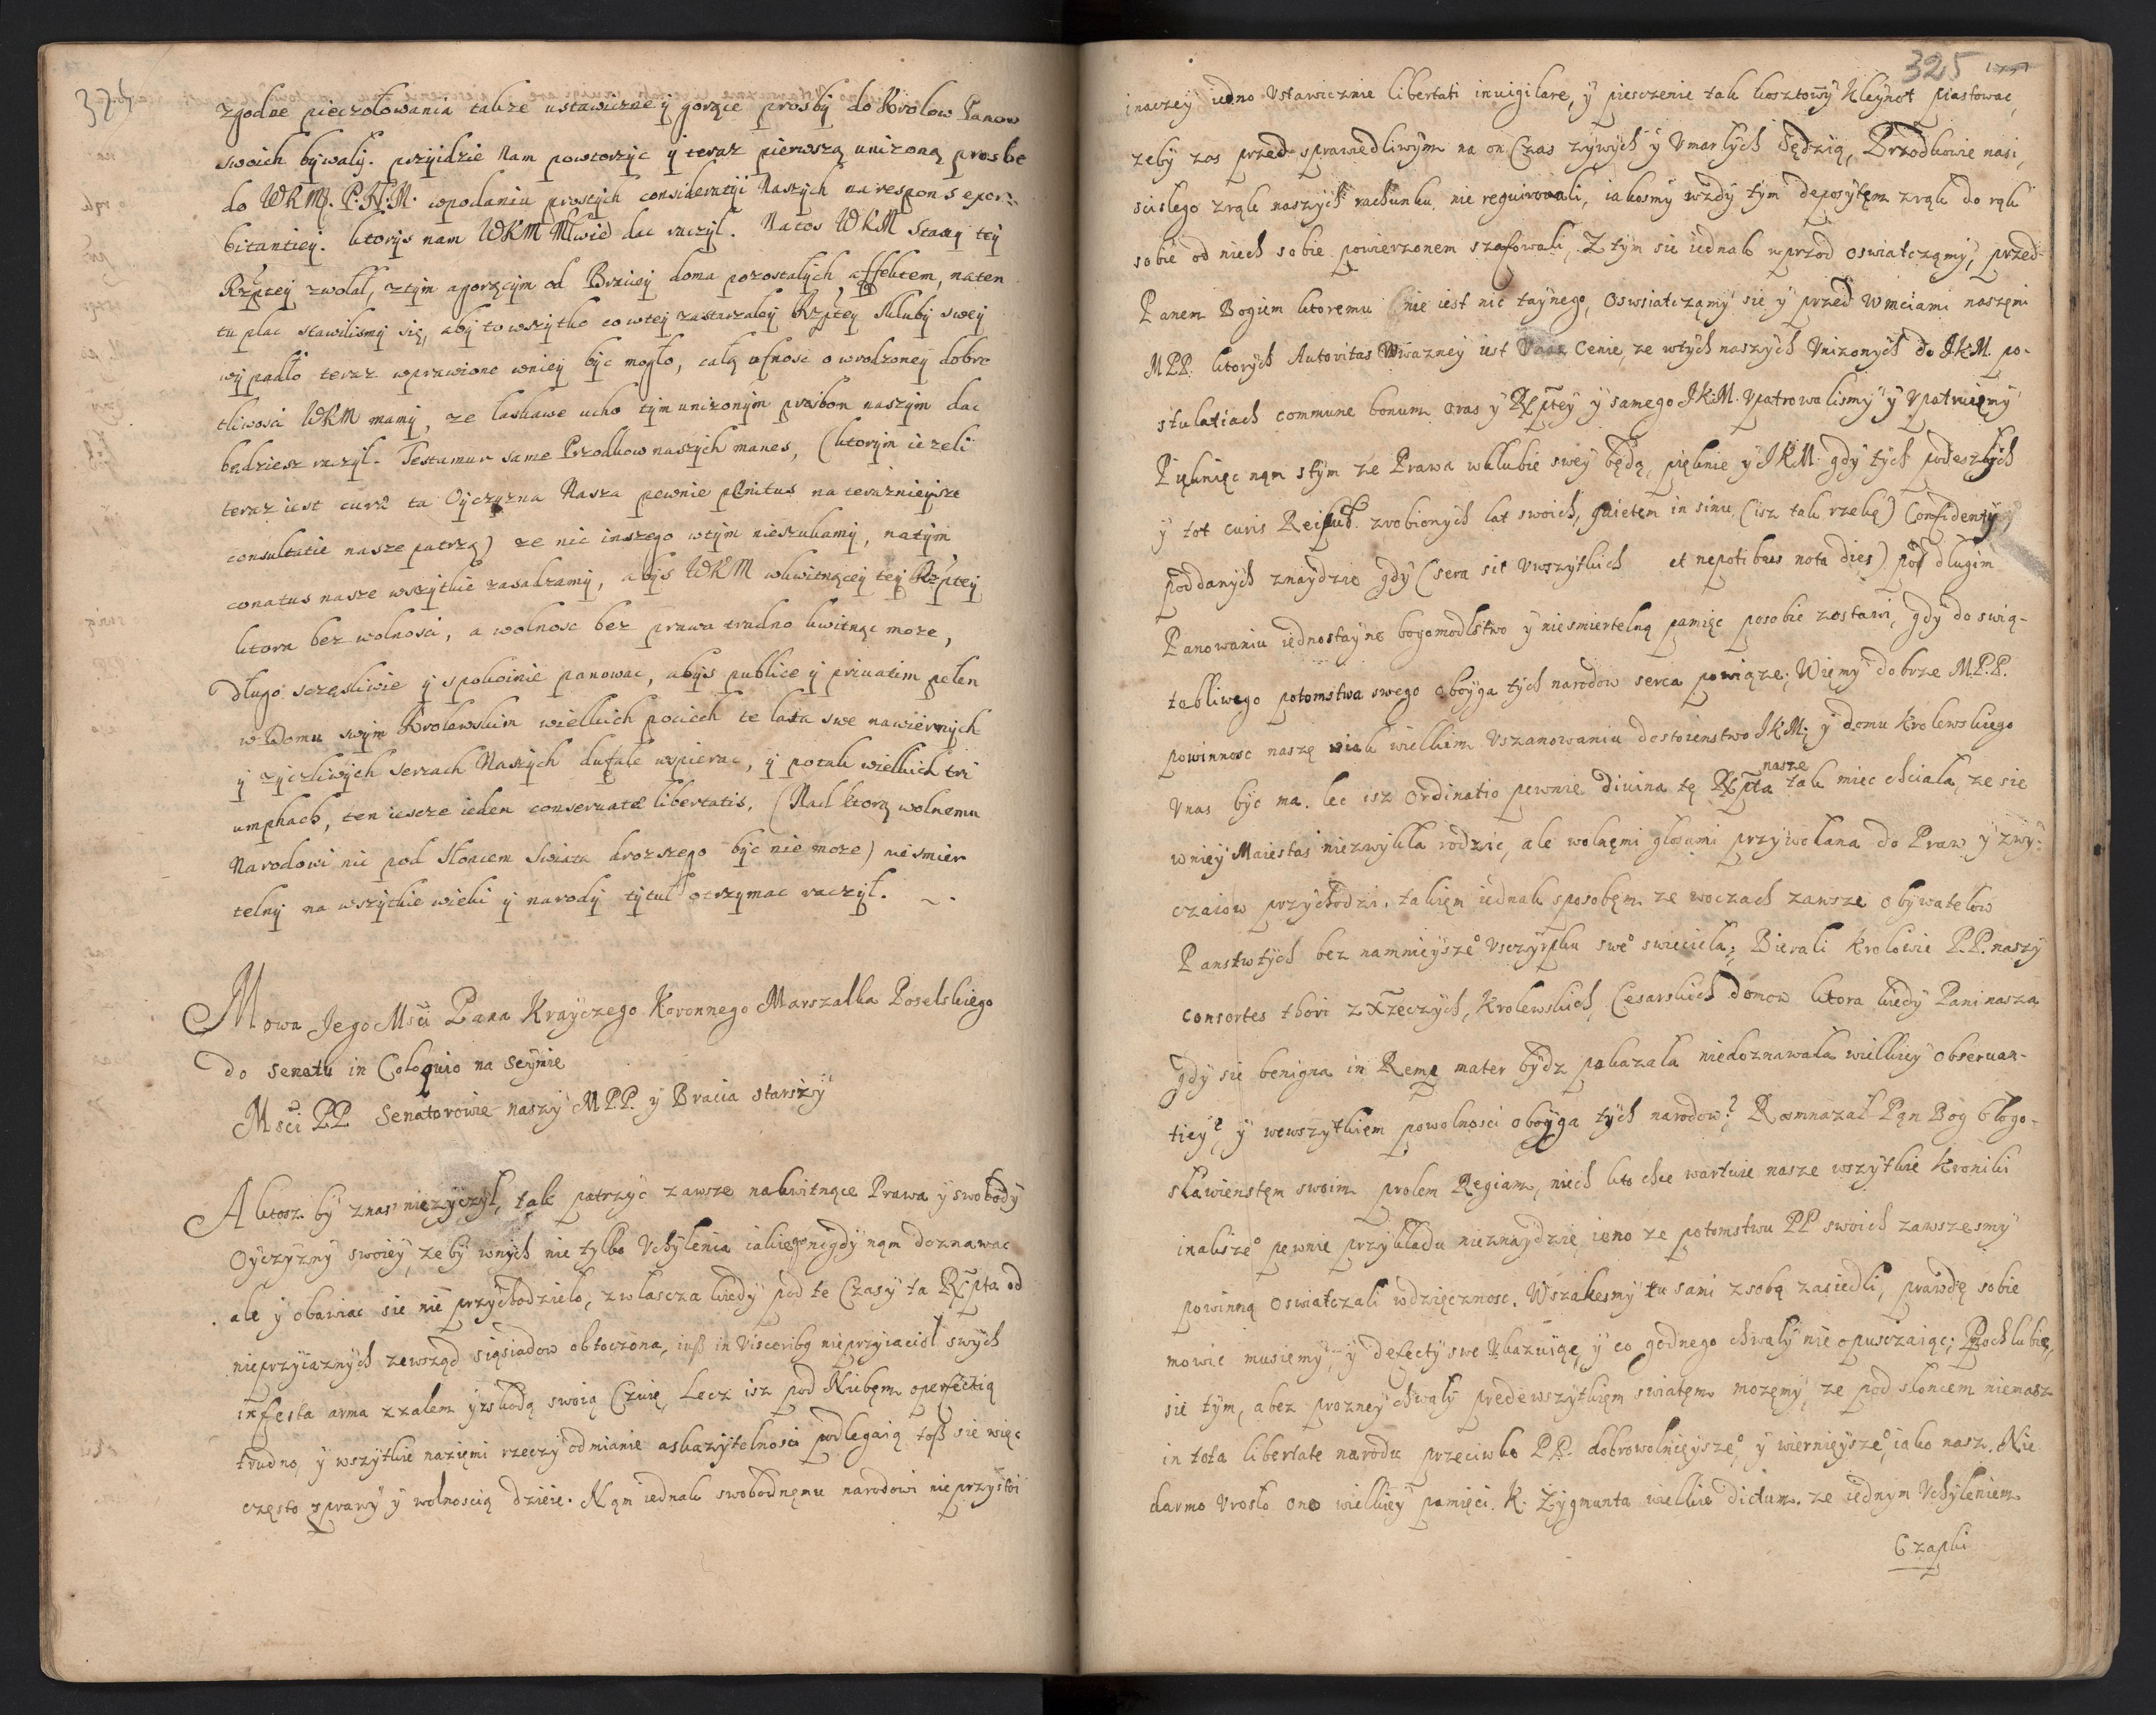 zgodne pieczołowania takze ustawiczne y gorące prosby do Krolow Panow
swoich bywały. przyidzie Nam powtorzyc y teraz pierwszą unizoną prosbe
do WKM. P.N.M. wpodaniu prostych consideratyi Naszych na respons exor-
bitantiey. ktorys nam WKM Mćiwie dac raczył. Natos WKM Stany tey
Rzptey zwołał, ztym agorącym od Braciey doma pozostałych affektem, naten
tu plac stawilismy się, aby to wszytko co wtey zastarzałey Rzptey skluby swey
wypadło teraz wprawione wniey byc mogło, całą ufnosc o wrodzoney dobro
tliwosci WKM mamy, ze łaskawe ucho tym unizonym prozbom naszym dac
będziesz raczył. Testamur same Przodkow naszych manes, (ktorym iezeli
teraz iest curae ta Oyczyzna Nasza pewnie penitus na teraznieysze
consultatie nasze patrzą) ze nic inszego wtym nieszukamy, natym
conatus nasze wszytkie zasadzamy, abys WKM wkwitnącey tey Rzptey
ktora bez wolnosci, a wolnosc bez prawa trudno kwitnąc moze,
długo scęsliwie y spokoinie panowac, abys publice y privatim pełen
w Domu swym Krolawskim wielkich pociech te lata swe nawiernych
y zyczliwych sercach Naszych dufale wspierac, y potak wielkich tri
umphach, ten iescze ieden conservatae libertatis, (Nad ktorą wolnemu
Narodowi nic pod Słoncem Swiata drozszego byc nie moze) niesmier
telny na wszytkie wieki y narody tytuł otrzymac raczył.
Mowa Jego Mści Pana Krayczego Koronnego Marszałka Poselskiego
do Senatu in Coloquio na Seymie
Msci PP Senatorowie naszy MPP. y Bracia starszy
A ktosz by znas niezyczył, tak patrzyc zawsze nakwitnące Prawa y swobody
Oyczyzny swoiey, zeby wnych nie tylko Uchylenia iakiego nigdy nąm doznawac
ale y obawiac sie nie przychodzieło, zwlascza kiedy pod te Czasy ta Rzpta od
nieprzyiaznych zewsząd sięsiadow obtoczona, iusz in Visceribg nieprzyiacioł swych
infesta arma zzalem yzskodą swoią Czuie, Lecz isz pod Niebęm operfectią
trudno, y wszytkie naziemi rzeczy odmianie askazytelnosci podlegaią tosz sie więc
często zprawy y wolnoscią dzieie. Nąm iednak swobodnęmu narodowi nieprzystoi
325
inaczey iedno Vstawicznie libertati invigilare, y piesczenie tak kosztowny Kleynot piastowac,
zeby zas przed sprawiedliwym na on Czas zywych y Vmarłych Sędzią, Przodkowie nasi,
scislego zrąk naszych rachunku nie requirowali, iakosmy wżdy tym depozytęm zrąk do rąk
sobie od niech sobie powierzonem szafowali, Z tym sie iednak wprzod oswiatczamy, przed
Panem Bogiem ktoremu nie iest nic taynego, Oswsiatczamy sie y przed Wmciami naszęmi
MPP. ktorych Autoritas Wwazney iest Vnas Cenie, ze wtych naszych Vnizonych do JKM. po-
stulatiach commune bonum oras y Rzptey y samego JKM. Vpatrowalismy y Vpatruiemy
Piękniec nąm stym ze Prawa wklubie swey będą, pięknie y JKM. gdy tych podeszłych
y tot curis Reipub. zrobionych lat swoich, quietem in sinu (isz tak rzekę) Confidenty
poddanych znaydzie gdy (sera sit Vwszytkich et nepotibus nota dies) po długim
Panowaniu iednostayne bogomodlstwo y niesmiertelną pamięc posobie zostawi, gdy do swią-
tobliwego potomstwa swego oboyga tych narodow serca powiąze; Wiemy dobrze M.P.P.
powinnosc naszę wiak wielkim Vszanowaniu dostoienstwo JKM. y domu Krolewskiego
Vnas byc ma. lec isz Ordinatio pewnie divina tę Rzpta nasze tak miec chciała, ze sie
wniey Maiestas niezwykła rodzic, ale wolnemi głosami przywołana do Praw y zwy-
czaiow przychodzi. takięm iednak sposobęm ze woczach zawsze obywatelow
Panstwtych bez namnieysze° Vsczyrpku swe° swieciela; Bierali Krolowie P.P. naszy
consortes thori zXzeczych, Krolewskich, Cesarskich domow ktora kiedy Pani nasza
gdy sie benigna in Remp mater bydz pokazała niedoznawała wielkiey Obseruan-
tiey? y wewszytkięm powolnosci oboyga tych narodow? Rozmnazał Pąn Bog błogo-
sławienstęm swoim prolem Regiam, niech kto chce wartuie nasze wszytkie Kroniki
inaksze° pewnie przykładu nieznaydzie ieno ze potomstwu PP swoich zawszesmy
powinną Oswiatczali wdzięcznosc. Wszakesmy tu sami zsobą zasiedli, prawdę sobie
mowic musiemy, y defecty swe Vkazuiąc, y co godnego chwały nie opusczaiąc; Pochlubic,
sie tym, a bez prozney chwały predewszytkięm swiatęm mozęmy, ze pod słoncem niemasz
in tota libertate narodu przeciwko P.P. dobrowolnięysze° y wiernięysze° iako nasz. Nie
darmo Vrosło ono wielkiey pamięci. K. Zygmunta wielkie dictum. ze iednym Vchyleniem
Czapki